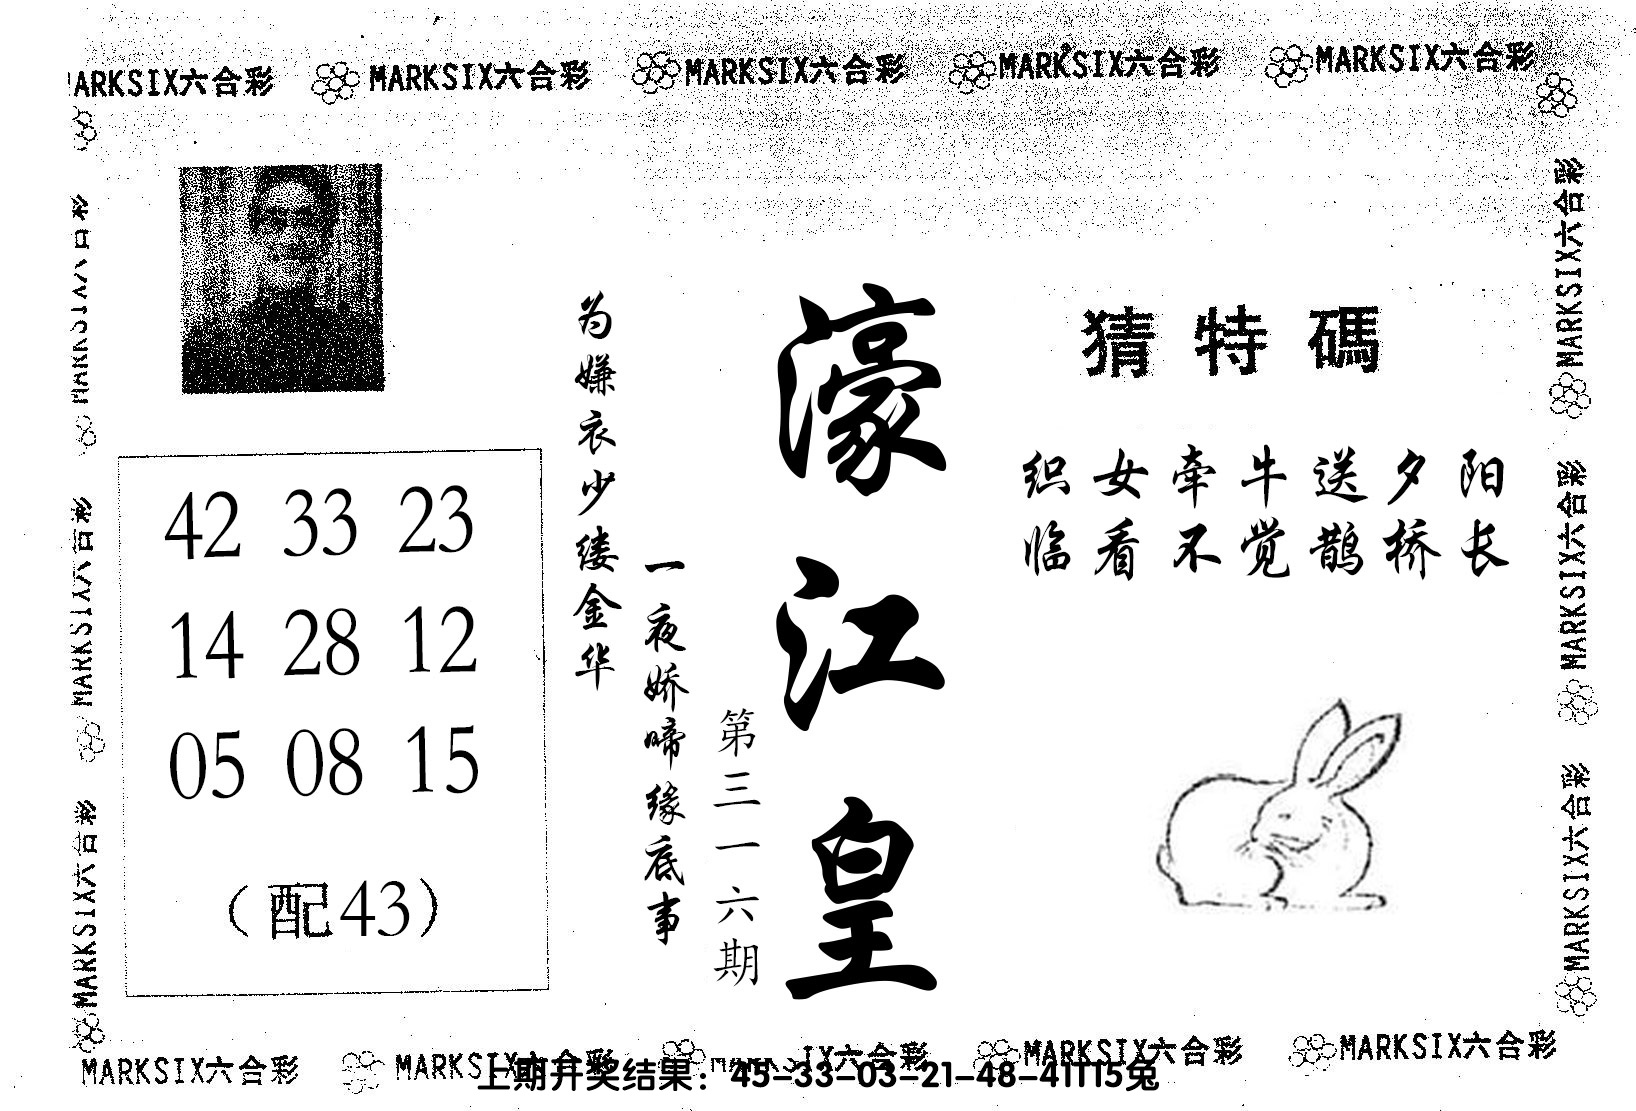 MARKSIX六合彩 MARKSIX六合彩 MARKSIX六合彩 MARKSIX六合彩 MARKSIX六合彩
MARKSIX六合彩
MARKSIX六合彩
MARKSIX六合彩
MARKSIX六合彩
MARKSIX六合彩
MARKSIX六合彩
猜特碼
织女牵牛送夕阳
临看不觉鹊桥长
濠江皇
第三一六期
一夜娇啼缘底事
为嫌衣少缕金华
42 33 23
14 28 12
05 08 15
（配43）
MARKSIX六合彩 MARKSIX六合彩 IX六合彩 MARKSIX六合彩 MARKSIX六合彩
上期开奖结果：45-33-03-21-48-41T15兔